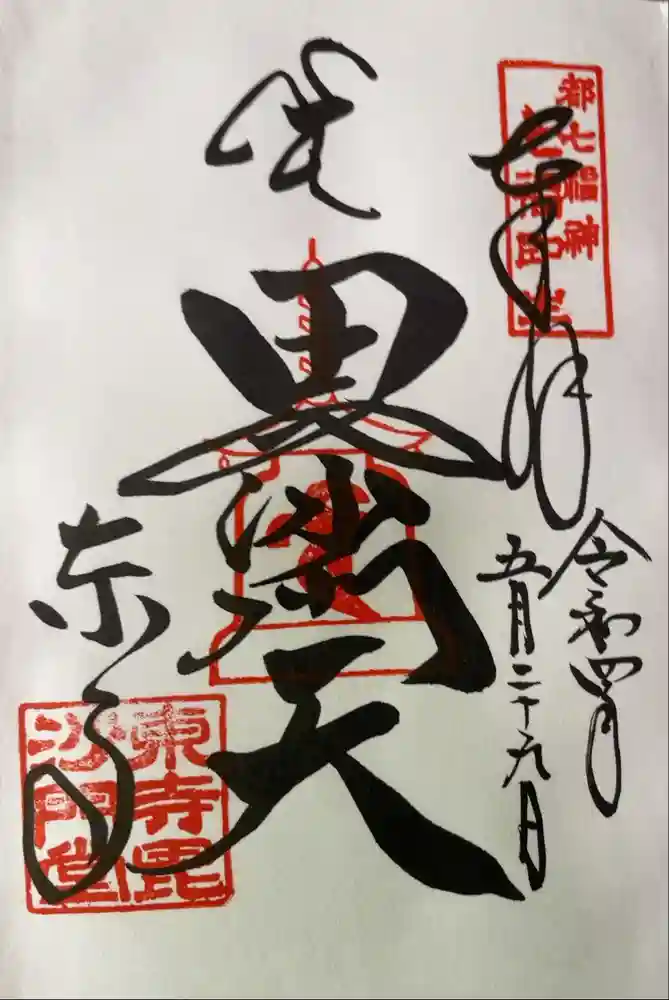 都七福神
七福即生
奉拝
令和四年
五月二十九日
毘沙門天
東寺
東寺毘
沙門堂